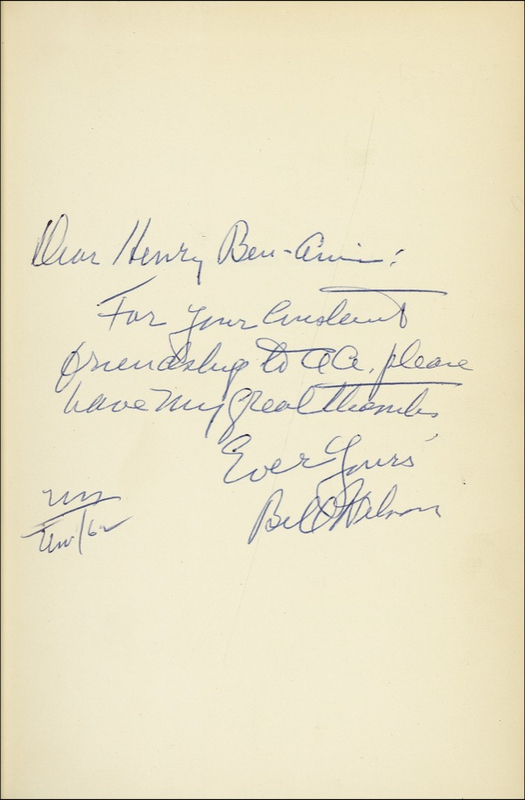 Dear Henry Ben-Ami:
For your constant
friendship to AA, please
have my great thanks
Ever Yours
Bill Wilson